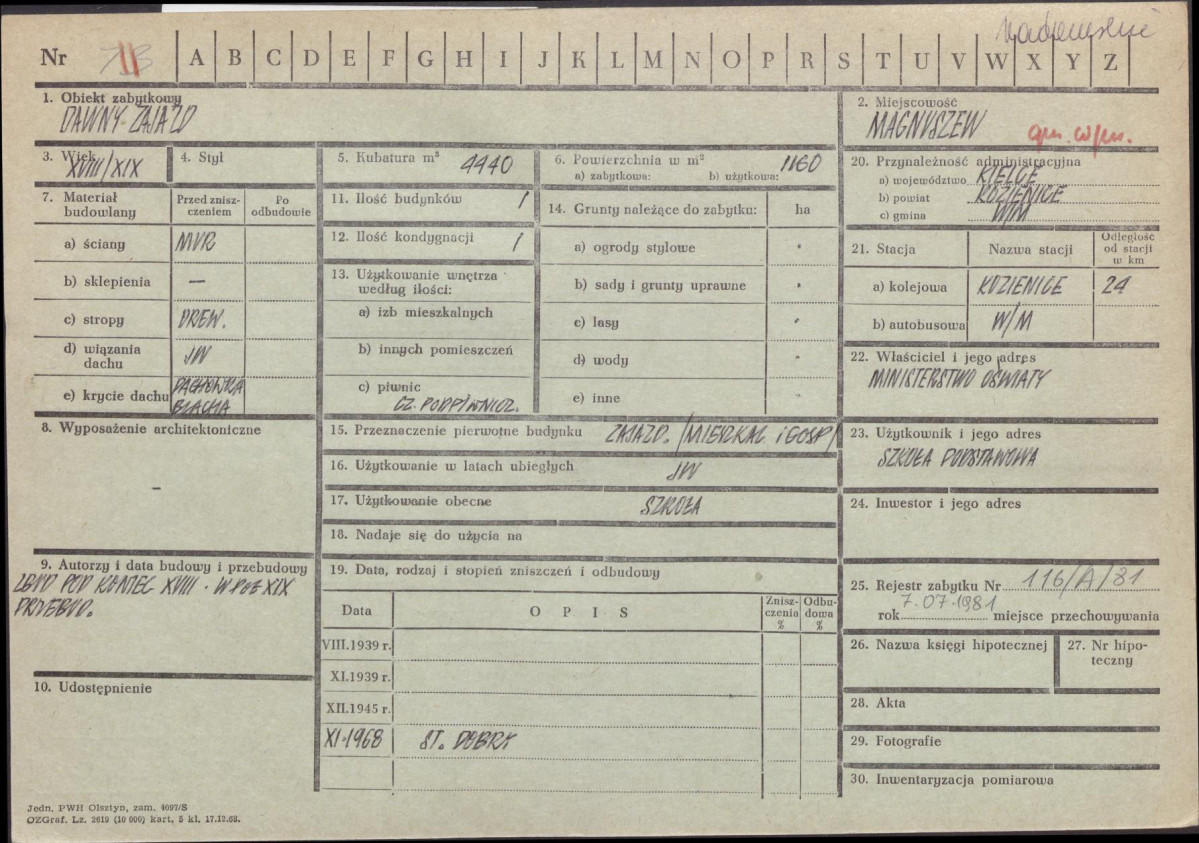 Nr A B C D E F G H I J K L M N O P R S T U V W X Y Z
1. Obiekt zabytkowy
DAWNY ZAJAZD
2. Miejscowość
MAGNUSZEW
3. Wiek
XVIII/XIX
4. Styl
5. Kubatura m³ 4440
6. Powierzchnia w m²
a) zabytkowa: b) użytkowa: 1160
7. Materiał budowlany
Przed zniszczeniem
Po odbudowie
a) ściany MUR
b) sklepienia —
c) stropy DREW.
d) wiązania dachu JW
e) krycie dachu DACHÓWKA
BLACHA
8. Wyposażenie architektoniczne
–
9. Autorzy i data budowy i przebudowy
ZBUD POD KONIEC XVIII. W POŁ XIX
PRZEBUD.
10. Udostępnienie
11. Ilość budynków 1
12. Ilość kondygnacji 1
13. Użytkowanie wnętrza
według ilości:
a) izb mieszkalnych
b) innych pomieszczeń
c) piwnic
CZ. PODPIWNICZ.
14. Grunty należące do zabytku: ha
a) ogrody stylowe
b) sady i grunty uprawne
c) lasy
d) wody
e) inne
15. Przeznaczenie pierwotne budynku ZAJAZD. /MIESZKAL i GOSP/
16. Użytkowanie w latach ubiegłych JW
17. Użytkowanie obecne SZKOŁA
18. Nadaje się do użycia na
19. Data, rodzaj i stopień zniszczeń i odbudowy
Data O P I S Zniszczenia % Odbudowa %
VIII.1939 r.
XI.1939 r.
XII.1945 r.
XI.1968 ST. DOBRY
20. Przynależność administracyjna
a) województwo KIELCE
b) powiat KOZIENICE
c) gmina W/M
21. Stacja Nazwa stacji Odległość od stacji w km
a) kolejowa KOZIENICE 24
b) autobusowa W/M
22. Właściciel i jego adres
MINISTERSTWO OŚWIATY
23. Użytkownik i jego adres
SZKOŁA PODSTAWOWA
24. Inwestor i jego adres
25. Rejestr zabytku Nr 116/A/81
rok 7.07.1981 miejsce przechowywania
26. Nazwa księgi hipotecznej
27. Nr hipoteczny
28. Akta
29. Fotografie
30. Inwentaryzacja pomiarowa
Jedn. PWH Olsztyn, zam. 4097/S
OZGraf. Lz. 2619 (10 000) kart, 5 kl. 17.12.68.